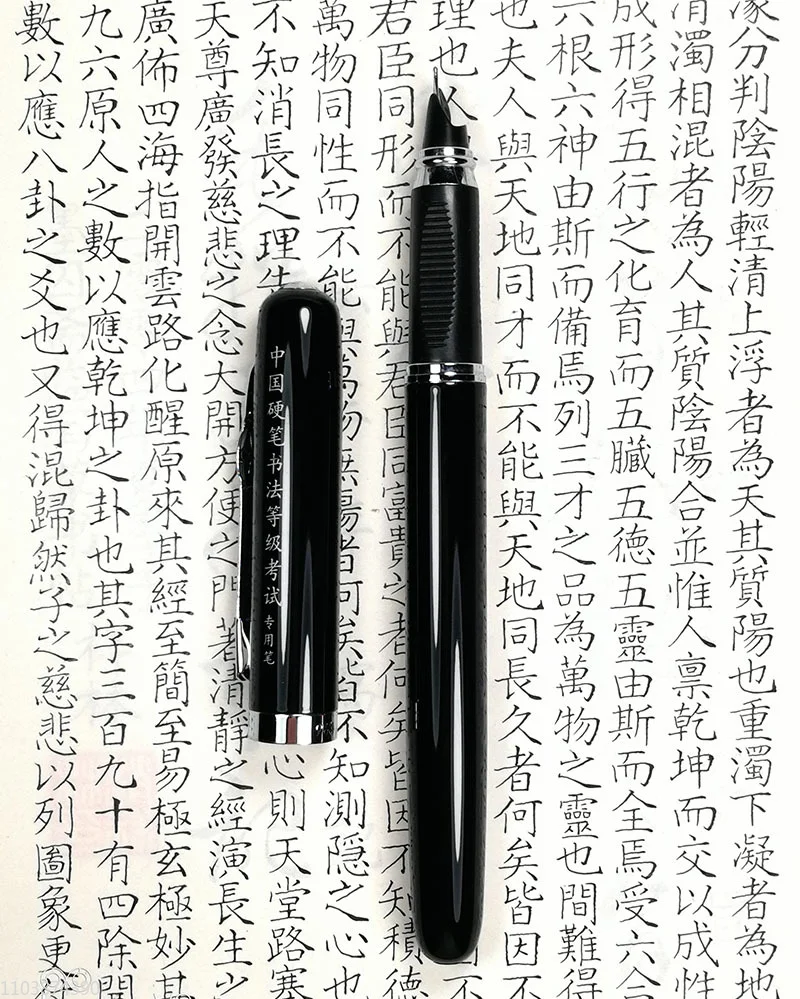 分判陰陽輕清上浮者為天其質陽也重濁下凝者為地
清濁相混者為人其質陰陽合並惟人禀乾坤而交以成性
成形得五行之化育而五臟五德五靈由斯而全焉受六合
六根六神由斯而備焉列三才之品為萬物之靈也間難得
也夫人與天地同才而不能與天地同長久者何矣皆因不
理也人
君臣同形而不能與君臣同富貴之者何矣皆因不知積德
萬物同性而不能與萬物無傷者何矣皆不知測隱之心也
不知消長之理
心則天堂路塞
天尊廣發慈悲之念大開方便之門著清靜之經演長生之
廣佈四海指開雲路化醒原來其經至簡至易極玄極妙其
九六原人之數以應乾坤之卦也其字三百九十有四除開
數以應八卦之爻也又得混歸然子之慈悲以列圖象更
中国硬笔书法等级考试 专用笔